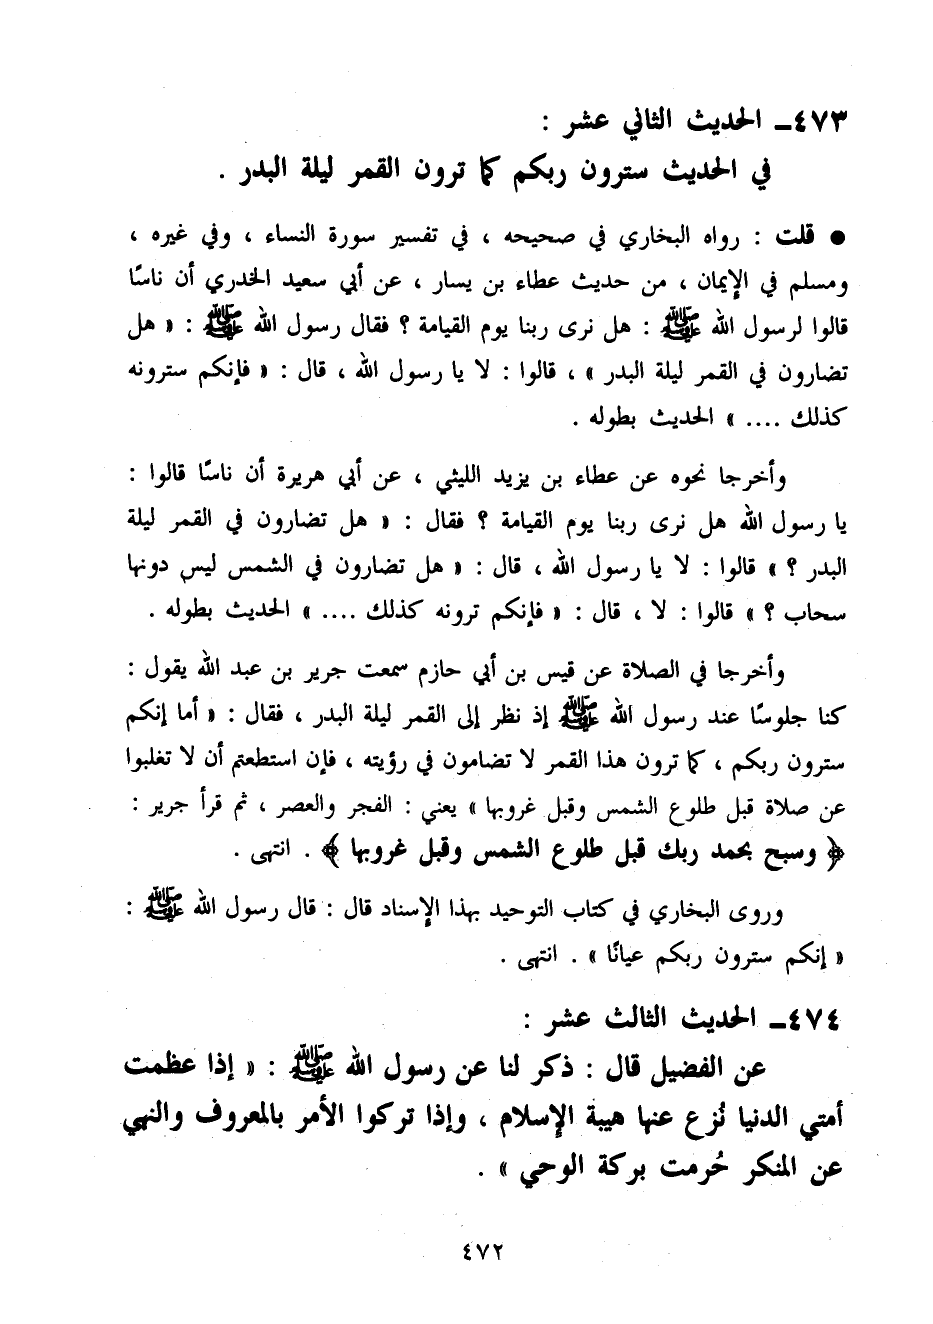 ٤٧٣ـ الحديث الثاني عشر :
في الحديث سترون ربكم كما ترون القمر ليلة البدر .
● قلت : رواه البخاري في صحيحه ، في تفسير سورة النساء ، وفي غيره ،
ومسلم في الإيمان ، من حديث عطاء بن يسار ، عن أبي سعيد الخدري أن ناسًا
قالوا لرسول الله ﷺ : هل نرى ربنا يوم القيامة ؟ فقال رسول الله ﷺ : « هل
تضارون في القمر ليلة البدر » ، قالوا : لا يا رسول الله ، قال : « فإنكم سترونه
كذلك .... » الحديث بطوله .
وأخرجا نحوه عن عطاء بن يزيد الليثي ، عن أبي هريرة أن ناسًا قالوا :
يا رسول الله هل نرى ربنا يوم القيامة ؟ فقال : « هل تضارون في القمر ليلة
البدر ؟ » قالوا : لا يا رسول الله ، قال : « هل تضارون في الشمس ليس دونها
سحاب ؟ » قالوا : لا ، قال : « فإنكم ترونه كذلك .... » الحديث بطوله .
وأخرجا في الصلاة عن قيس بن أبي حازم سمعت جرير بن عبد الله يقول :
كنا جلوسًا عند رسول الله ﷺ إذ نظر إلى القمر ليلة البدر ، فقال : « أما إنكم
سترون ربكم ، كما ترون هذا القمر لا تضامون في رؤيته ، فإن استطعتم أن لا تغلبوا
عن صلاة قبل طلوع الشمس وقبل غروبها » يعني : الفجر والعصر ، ثم قرأ جرير :
﴿ وسبح بحمد ربك قبل طلوع الشمس وقبل غروبها ﴾ . انتهى .
وروى البخاري في كتاب التوحيد بهذا الإسناد قال : قال رسول الله ﷺ :
« إنكم سترون ربكم عيانًا » . انتهى .
٤٧٤ـ الحديث الثالث عشر :
عن الفضيل قال : ذكر لنا عن رسول الله ﷺ : « إذا عظمت
أمتي الدنيا نُزع عنها هيبة الإسلام ، وإذا تركوا الأمر بالمعروف والنهي
عن المنكر حُرمت بركة الوحي » .
٤٧٢